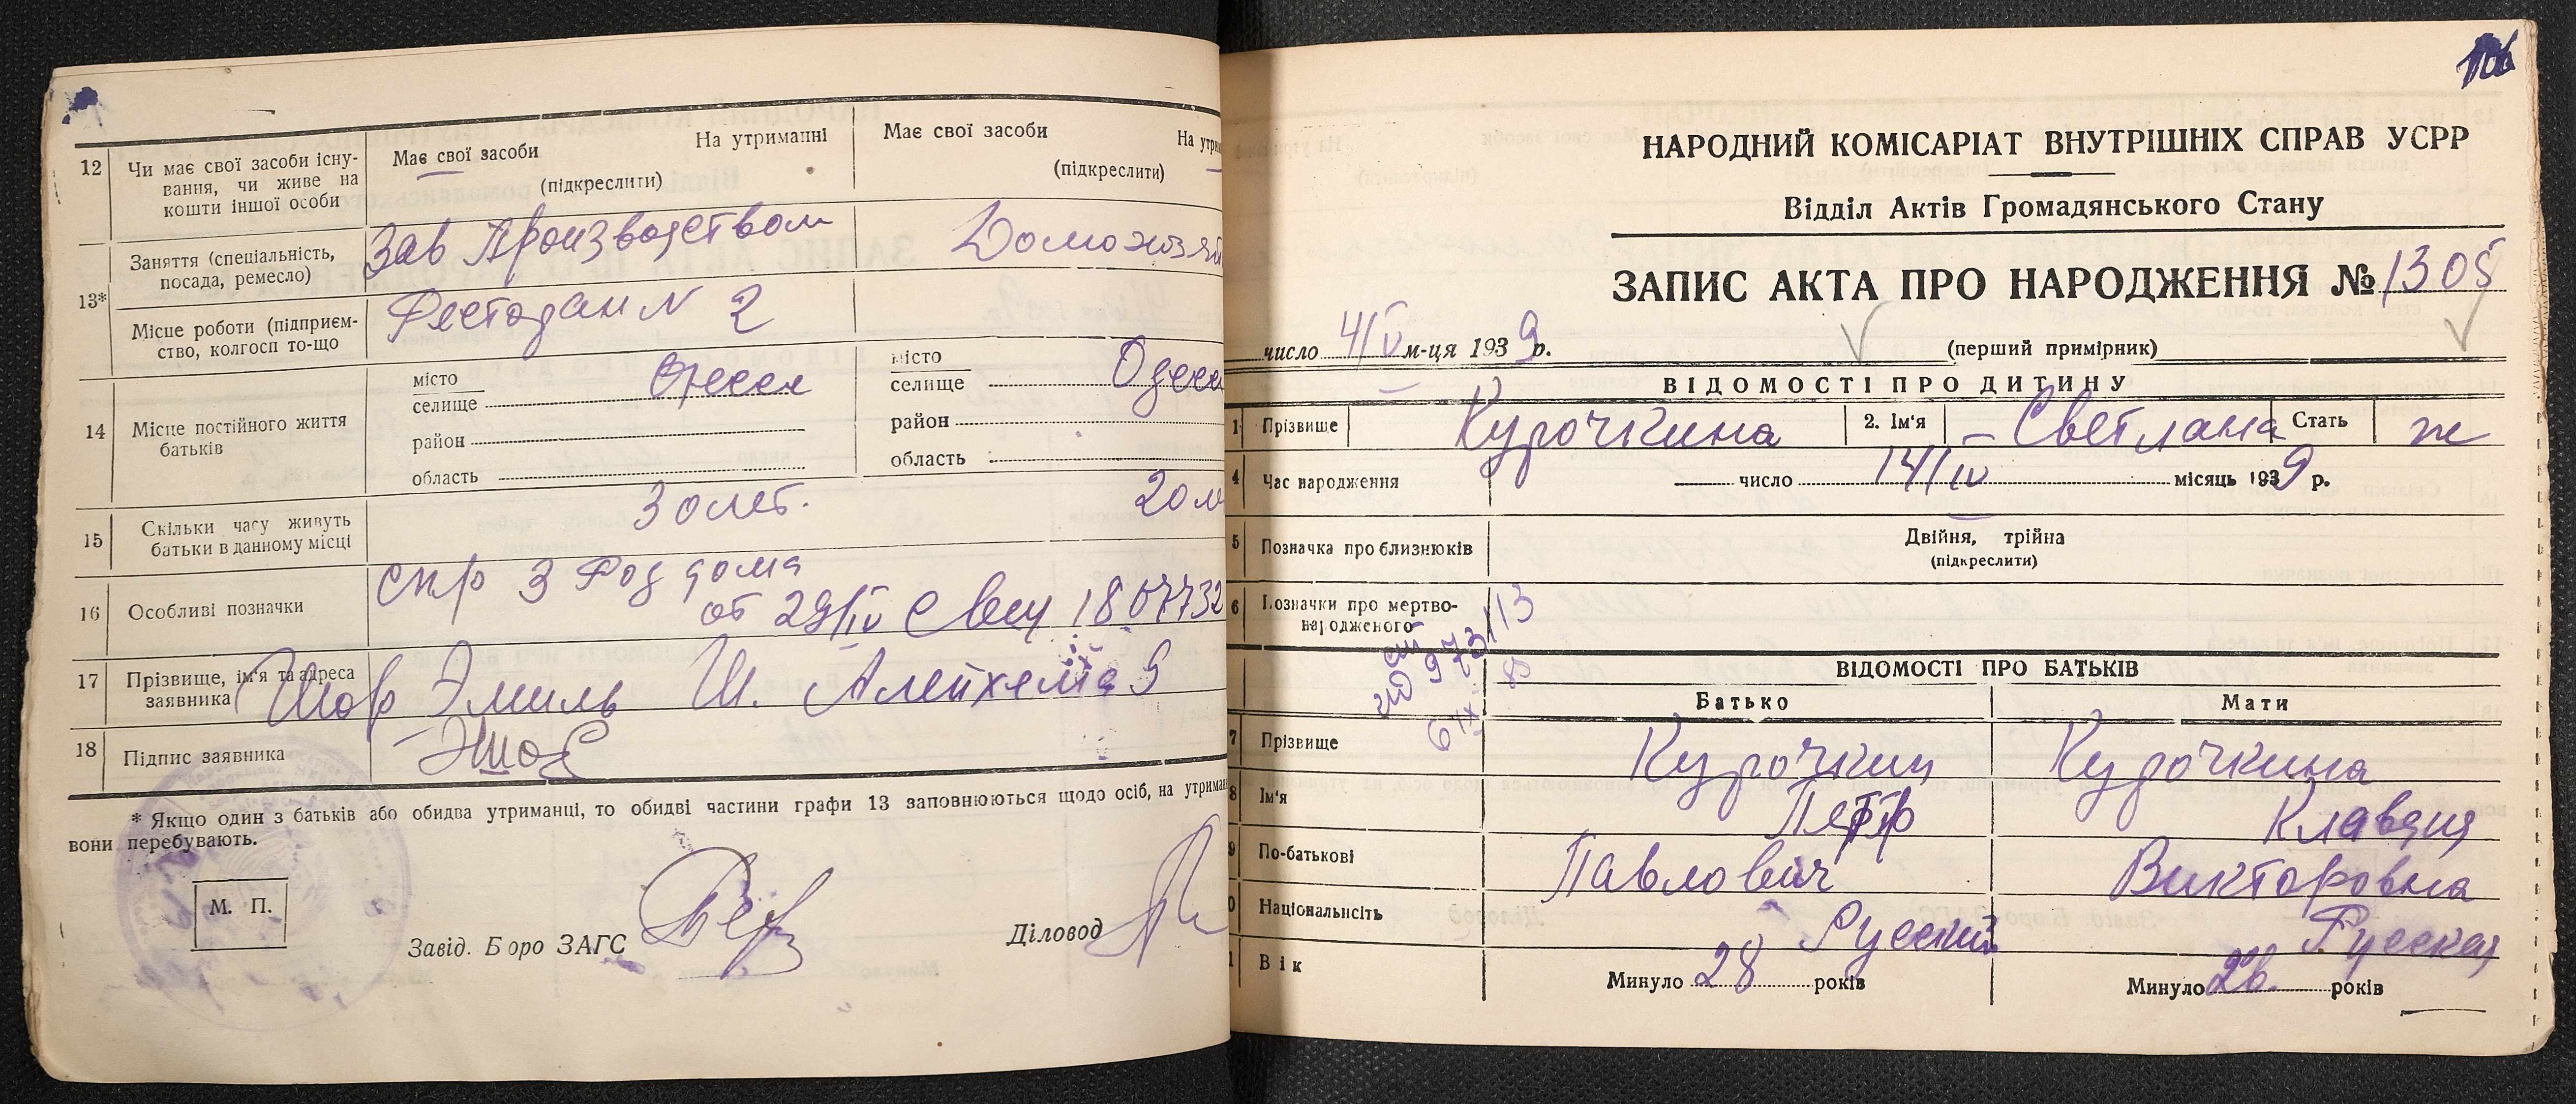 12 Чи має свої засоби існування, чи живе на кошти іншої особи
Має свої засоби На утриманні
(підкреслити)
Має свої засоби На утрим
(підкреслити)
13* Заняття (спеціальність, посада, ремесло)
Зав Производством
Домохозяй
Місце роботи (підприємство, колгосп то-що
Ресторан N 2
14 Місце постійного життя батьків
місто
селище Одесса
район
область
місто
селище Одесса
район
область
15 Скільки часу живуть батьки в данному місці
30 лет.
20 л
16 Особливі позначки
спр 3 Род дома
от 29/IV
17 Прізвище, ім'я та адреса заявника
Шор Эмиль Ш. Алейхема 5
18 Підпис заявника
ЭШор
* Якщо один з батьків або обидва утриманці, то обидві частини графи 13 заповнюються щодо осіб, на утриман
вони перебувають.
М. П.
Завід. Б оро ЗАГС
Діловод
106
НАРОДНИЙ КОМІСАРІАТ ВНУТРІШНІХ СПРАВ УСРР
Відділ Актів Громадянського Стану
ЗАПИС АКТА ПРО НАРОДЖЕННЯ № 1305
число 4/V м-ця 1939 р.
(перший примірник)
ВІДОМОСТІ ПРО ДИТИНУ
1 Прізвище Курочкина 2. Ім'я Светлана Стать ж
4 Час народження число 14/IV місяць 1939 р.
5 Позначка про близнюків Двійня, трійна
(підкреслити)
6 Позначки про мертвонародженого
ВІДОМОСТІ ПРО БАТЬКІВ
Батько Мати
7 Прізвище Курочкин Курочкина
8 Ім'я Петр Клавдия
9 По-батькові Павлович Викторовна
0 Національнсіть Русский Русская
1 Вік Минуло 28 років Минуло 26 років